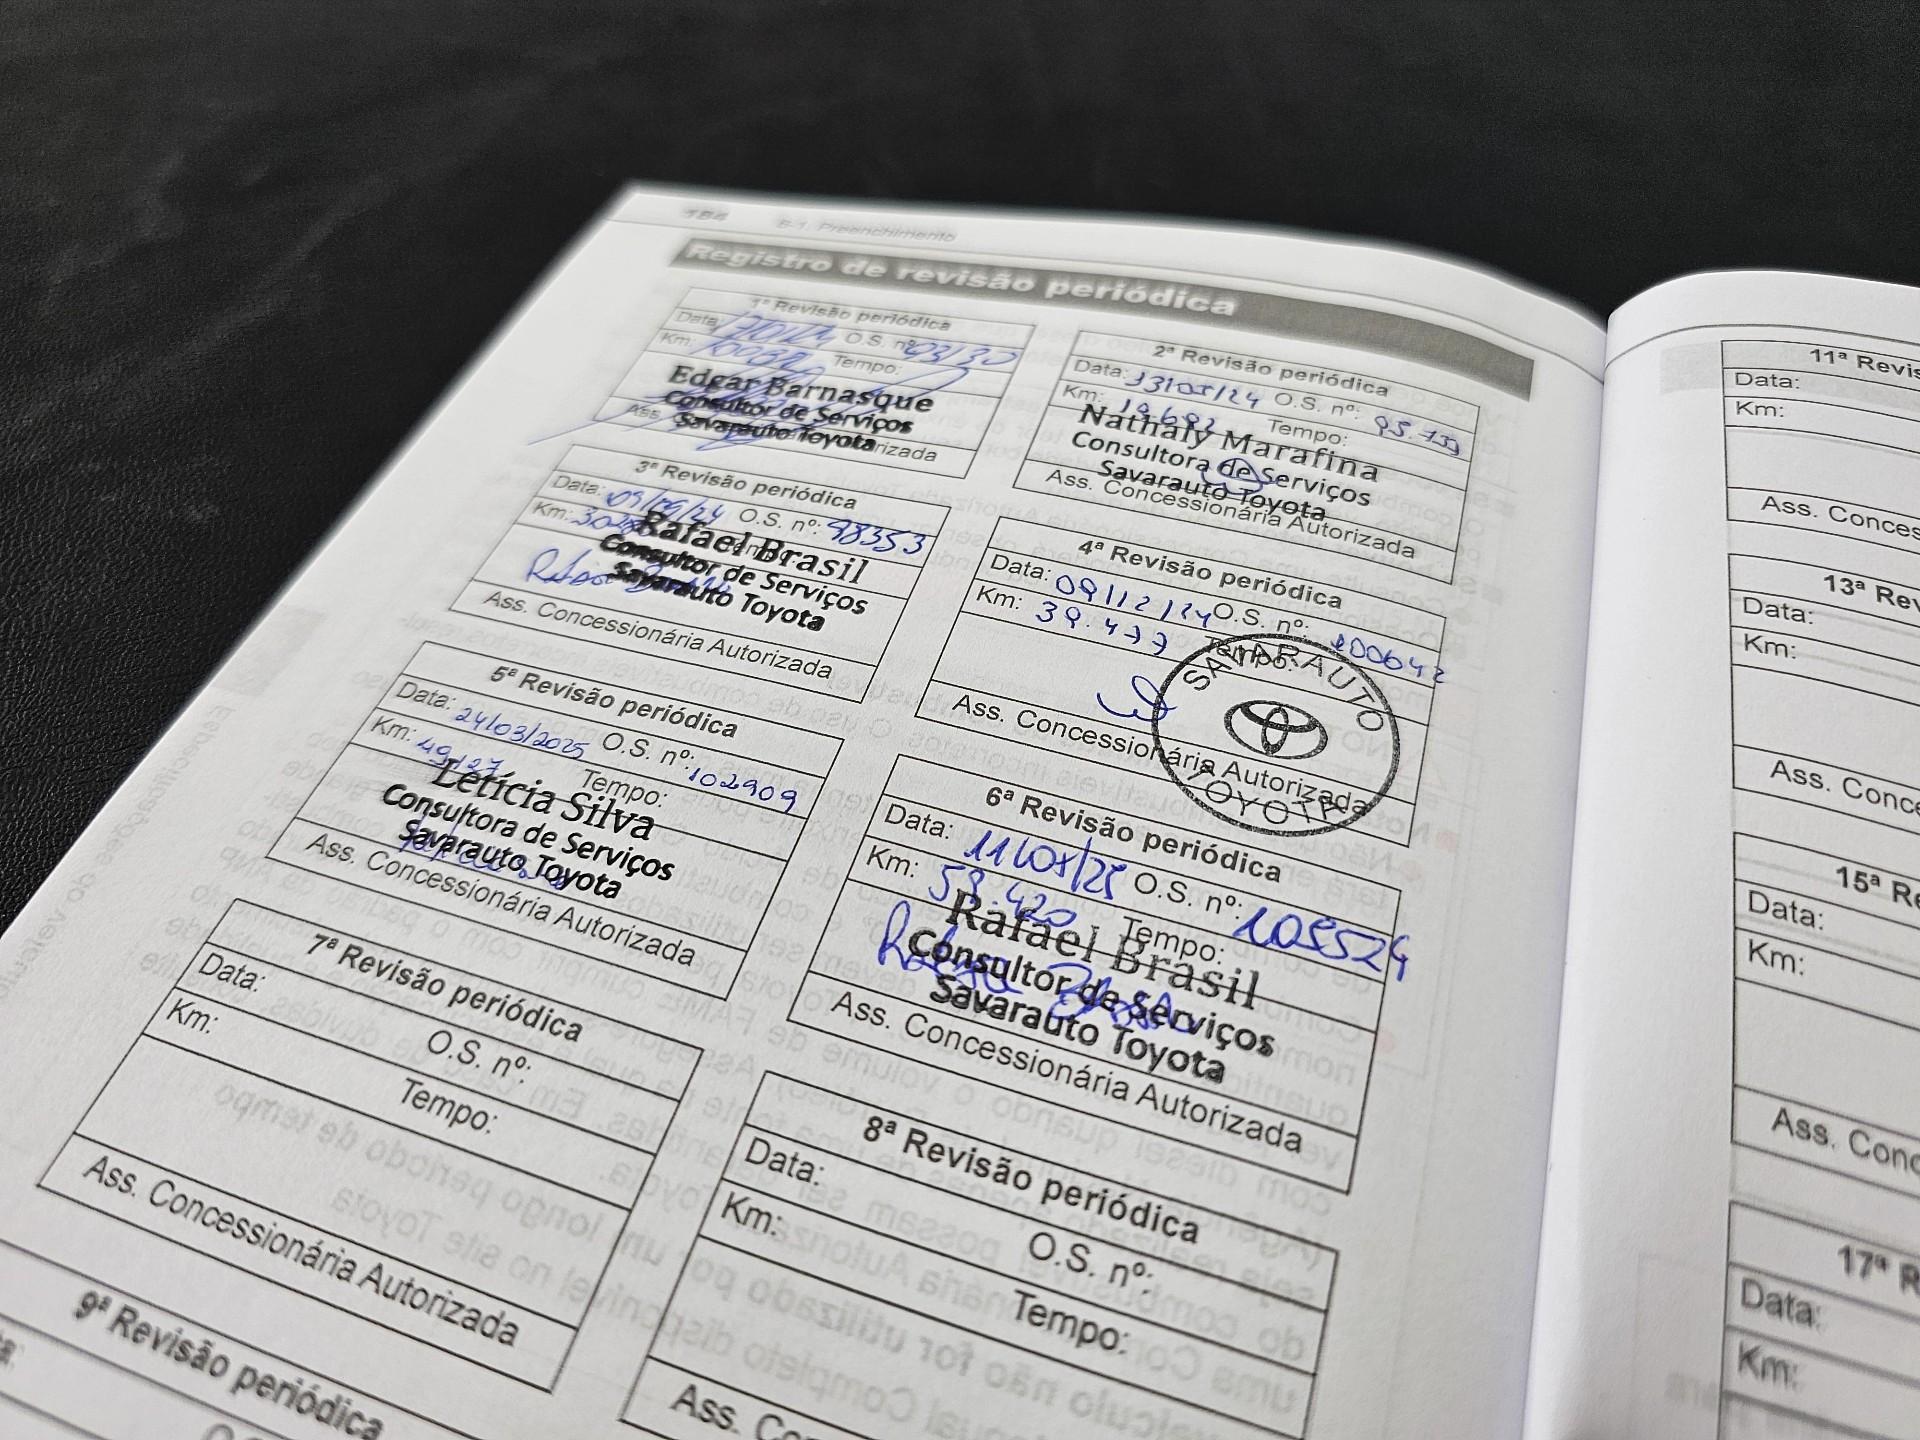 184 8-1. Preenchimento
Registro de revisão periódica
1ª Revisão periódica
Data: O.S. nº:
Km: Tempo:
Edgar Barnasque
Consultor de Serviços
Savarauto Toyota
Ass. Autorizada
2ª Revisão periódica
Data: 13/05/24 O.S. nº: 95.139
Km: 19.692 Tempo:
Nathaly Marafina
Consultora de Serviços
Savarauto Toyota
Ass. Concessionária Autorizada
3ª Revisão periódica
Data: 09/09/24 O.S. nº: 98353
Km:
Rafael Brasil
Consultor de Serviços
Savarauto Toyota
Ass. Concessionária Autorizada
4ª Revisão periódica
Data: 09/12/24 O.S. nº: 100642
Km: 39.477 Tempo:
SAVARAUTO
TOYOTA
Ass. Concessionária Autorizada
5ª Revisão periódica
Data: 24/03/2025 O.S. nº: 102909
Km: 49.127 Tempo:
Letícia Silva
Consultora de Serviços
Savarauto Toyota
Ass. Concessionária Autorizada
6ª Revisão periódica
Data: O.S. nº: 105524
Km: 59.420 Tempo:
Rafael Brasil
Consultor de Serviços
Savarauto Toyota
Ass. Concessionária Autorizada
7ª Revisão periódica
Data: O.S. nº:
Km: Tempo:
Ass. Concessionária Autorizada
8ª Revisão periódica
Data: O.S. nº:
Km: Tempo:
Ass.
9ª Revisão periódica
11ª
Data:
Km:
Ass.
13ª
Data:
Km:
Ass.
15ª
Data:
Km:
Ass.
17ª
Data:
Km: